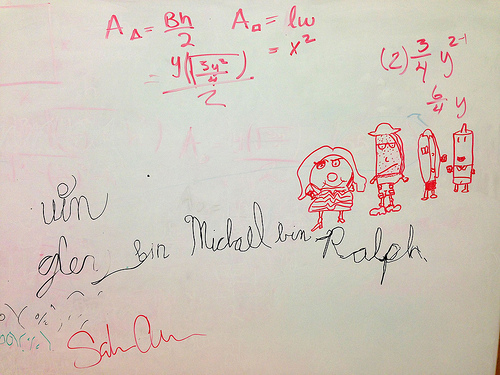 A△ = Bh/2 A□ = lw
= y(√(3y²/4))/2 = x²
(2) 3/4 y²⁻¹
6/4 y
win
glen bin Michael bin Ralph.